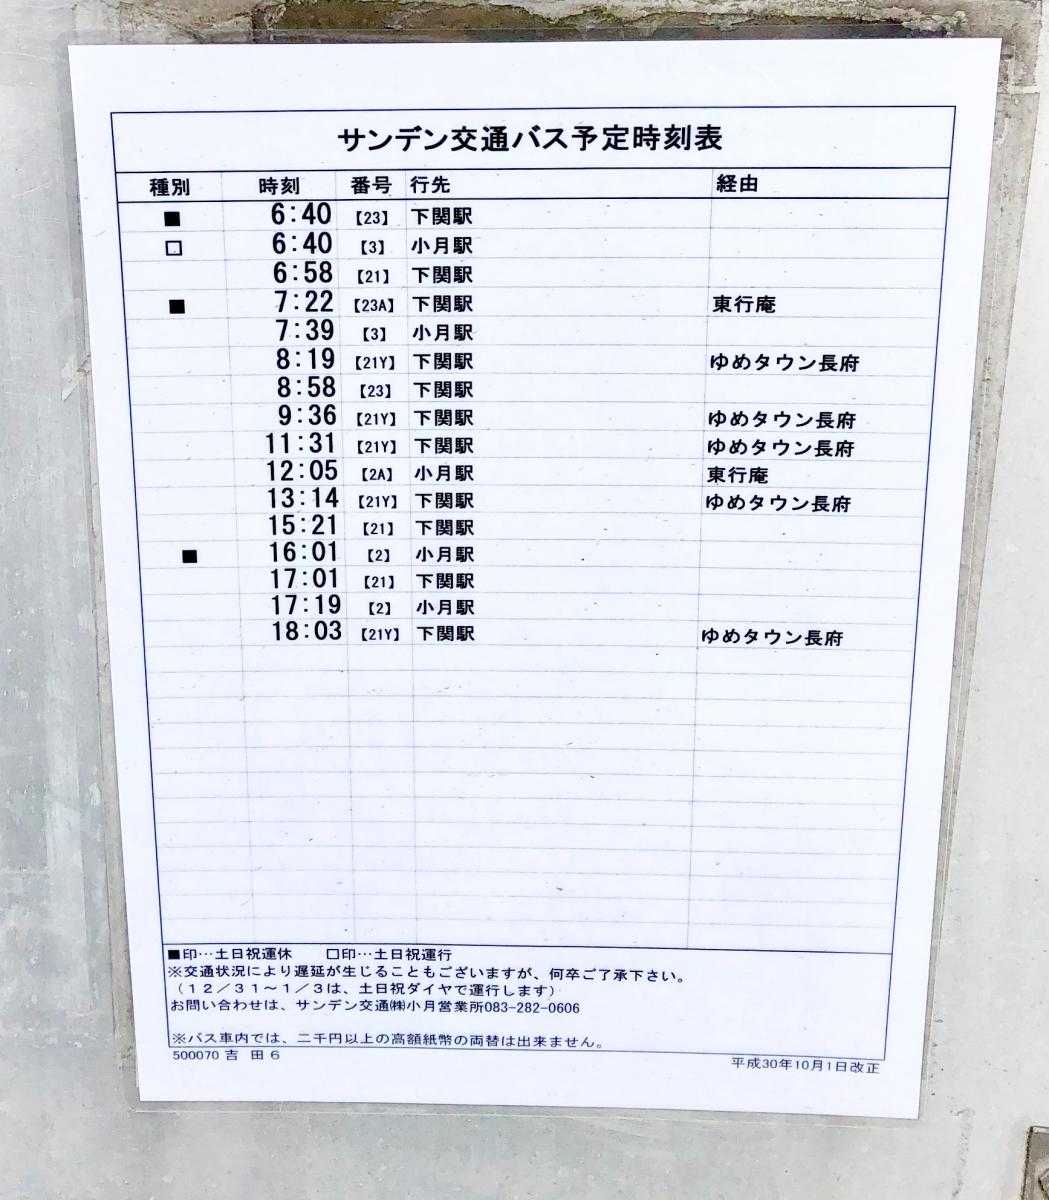 サンデン交通バス予定時刻表
種別 時刻 番号 行先 経由
■ 6:40 【23】 下関駅
□ 6:40 【3】 小月駅
6:58 【21】 下関駅
■ 7:22 【23A】 下関駅 東行庵
7:39 【3】 小月駅
8:19 【21Y】 下関駅 ゆめタウン長府
8:58 【23】 下関駅
9:36 【21Y】 下関駅 ゆめタウン長府
11:31 【21Y】 下関駅 ゆめタウン長府
12:05 【2A】 小月駅 東行庵
13:14 【21Y】 下関駅 ゆめタウン長府
15:21 【21】 下関駅
■ 16:01 【2】 小月駅
17:01 【21】 下関駅
17:19 【2】 小月駅
18:03 【21Y】 下関駅 ゆめタウン長府
■印…土日祝運休 □印…土日祝運行
※交通状況により遅延が生じることもございますが、何卒ご了承下さい。
（１２／３１～１／３は、土日祝ダイヤで運行します）
お問い合わせは、サンデン交通㈱小月営業所083-282-0606
※バス車内では、二千円以上の高額紙幣の両替は出来ません。
500070 吉 田 6 平成30年10月1日改正